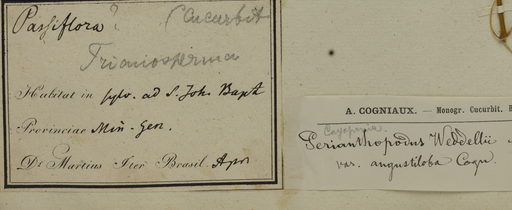 Passiflora? Cucurbit
Trianosperma
Habitat in sylv. ad S. Joh. Bapt
Provinciae Min. Gen.
Dr Martius Iter Brasil. Apr
A. COGNIAUX. — Monogr. Cucurbit. B
Cayaponia
Perianthopodus Weddellii
var. angustiloba Cogn.